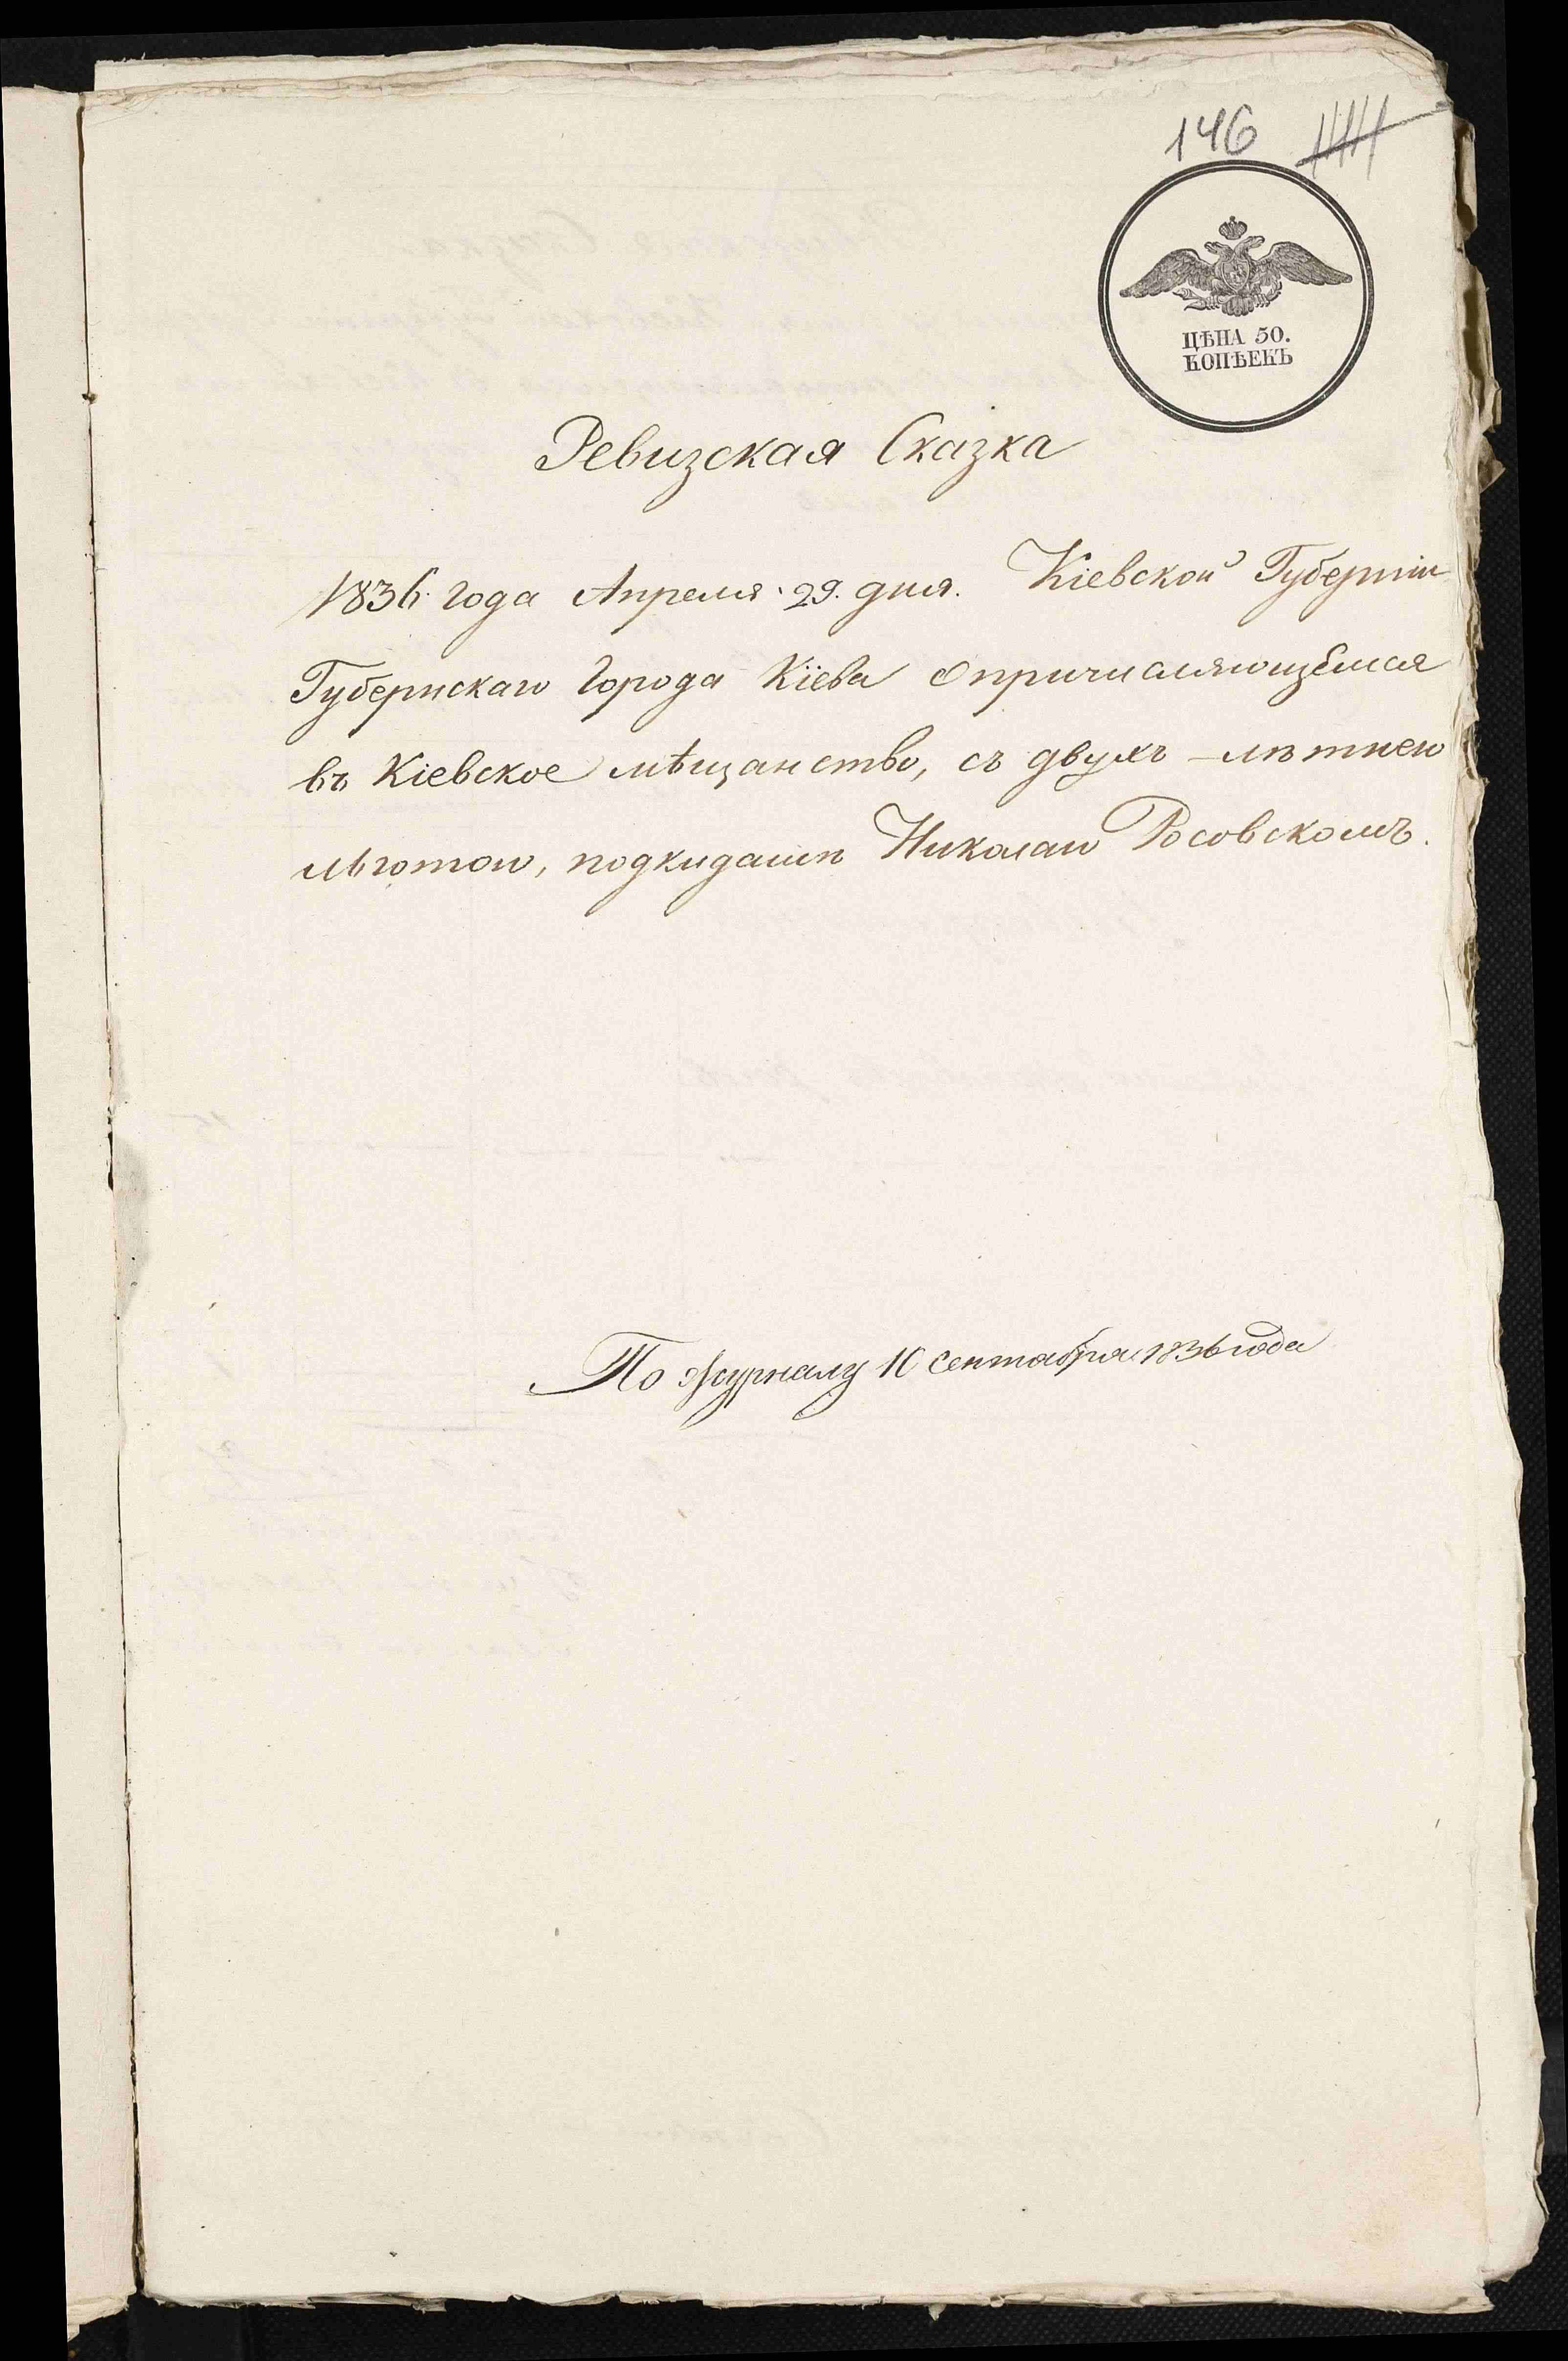 146
ЦѢНА 50.
КОПѢЕКЪ
Ревизская Сказка
1836 года Апреля 29. дня. Кіевской Губерніи
Губернскаго Города Кіева опричисляющемся
въ Кіевское мѣщанство, съ двухъ-лѣтнею
льготою, подкидышѣ Николаю Росовскомъ.
По журналу 10 Сентября 1836 года